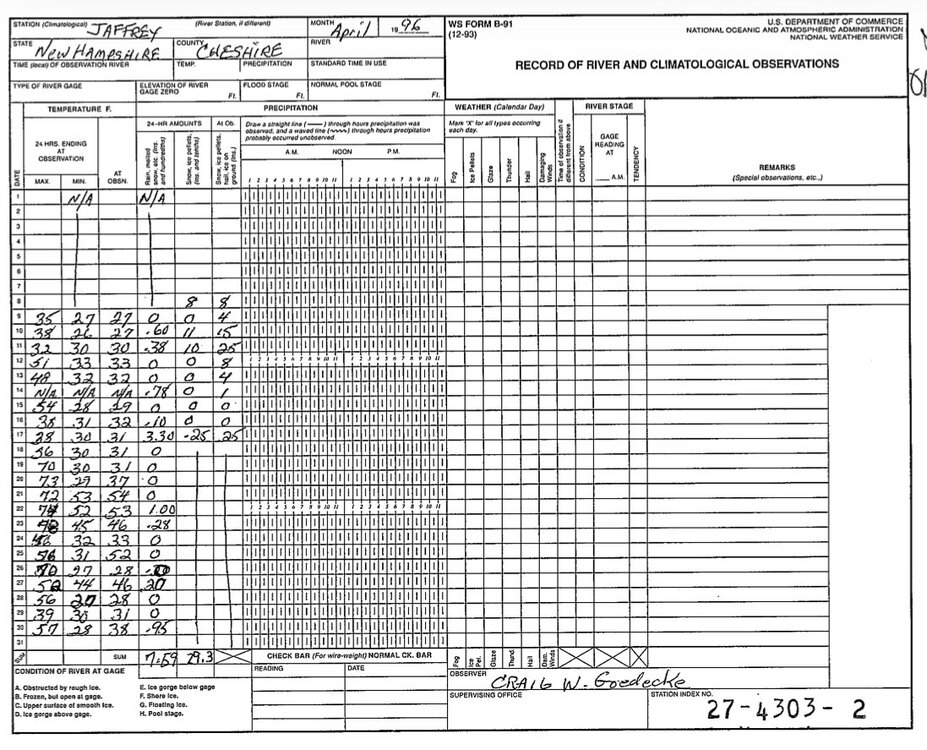 STATION (Climatological) JAFFREY (River Station, if different) MONTH April 1996 WS FORM B-91 (12-93) U.S. DEPARTMENT OF COMMERCE
NATIONAL OCEANIC AND ATMOSPHERIC ADMINISTRATION
NATIONAL WEATHER SERVICE
STATE New HAMPSHIRE COUNTY CHESHIRE RIVER
TIME (local) OF OBSERVATION RIVER TEMP. PRECIPITATION STANDARD TIME IN USE
RECORD OF RIVER AND CLIMATOLOGICAL OBSERVATIONS
TYPE OF RIVER GAGE ELEVATION OF RIVER GAGE ZERO Ft. FLOOD STAGE Ft. NORMAL POOL STAGE Ft.
TEMPERATURE F. PRECIPITATION WEATHER (Calendar Day) RIVER STAGE
24 HRS. ENDING AT OBSERVATION
24-HR AMOUNTS At Ob.
Draw a straight line (——) through hours precipitation was observed, and a waved line (~~~) through hours precipitation probably occurred unobserved.
Mark 'X' for all types occurring each day.
DATE MAX. MIN. AT OBSN.
Rain, melted snow, etc. (Ins. and hundredths)
Snow, ice pellets, (Ins. and tenths)
Snow, ice pellets, hail, ice on ground (Ins.)
A.M. NOON P.M.
1 2 3 4 5 6 7 8 9 10 11 1 2 3 4 5 6 7 8 9 10 11
Fog Ice Pellets Glaze Thunder Hail Damaging Winds
Time of observation if different from above
CONDITION
GAGE READING AT ___ A.M.
TENDENCY
REMARKS
(Special observations, etc.,)
1 N/A N/A
2
3
4
5
6
7
8 8 8
9 35 27 27 0 0 4
10 38 26 27 .60 11 15
11 32 30 30 .38 10 25
12 51 33 33 0 0 8
13 49 32 32 0 0 4
14 N/A N/A N/A .78 0 1
15 54 28 29 0 0 0
16 38 31 32 .10 0 0
17 38 30 31 3.30 .25 .25
18 56 30 31 0
19 70 30 31 0
20 73 29 37 0
21 72 53 54 0
22 52 53 1.00
23 45 46 .28
24 32 33 0
25 56 31 52 0
26 70 27 28
27 50 44 46 20
28 56 27 28 0
29 39 30 31 0
30 57 28 38 .95
31
SUM SUM 7.59 29.3
CHECK BAR (For wire-weight) NORMAL CK. BAR
Fog Ice Pel. Glaze Thund. Hail Dam. Winds
CONDITION OF RIVER AT GAGE READING DATE
OBSERVER CRAIG W. Goedecke
A. Obstructed by rough ice. E. Ice gorge below gage
B. Frozen, but open at gage. F. Shore ice.
C. Upper surface of smooth ice. G. Floating ice.
D. Ice gorge above gage. H. Pool stage.
SUPERVISING OFFICE STATION INDEX NO.
27-4303-2